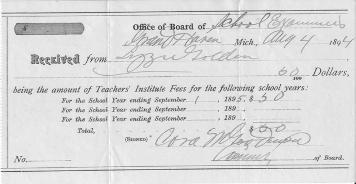 $
Office of Board of School Examiners
Grand Haven Mich., Aug 4 1894
Received from Lizzie Golden
50/100 Dollars,
being the amount of Teachers' Institute Fees for the following school years:
For the School Year ending September 1 1895 $ 50
For the School Year ending September 189 $
For the School Year ending September 189 $
Total, $ 50
(SIGNED) Cora
No. of Board.